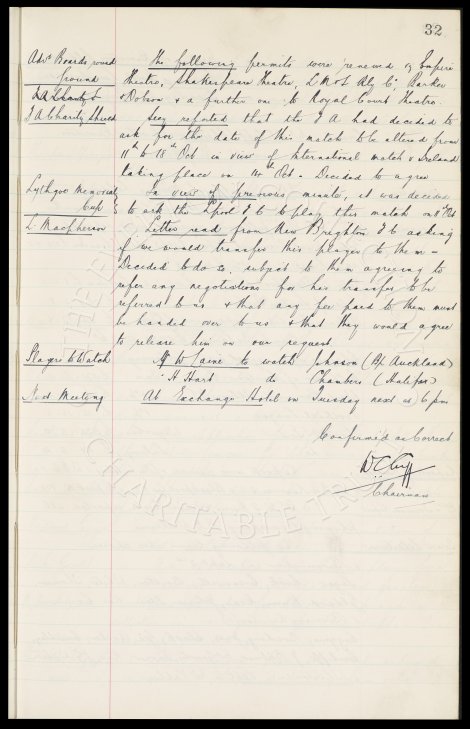 32
Advts Boards round The following permits were renewed eg Empire
ground Theatre, Shakespeare Theatre, L & N W Rly Co, Barker
& Dobson & a further one to Royal Court Theatre.
F A Charity Shield Secy reported that the F A had decided to
ask for the date of this match to be altered from
11th to 18th Oct in view of International match v Ireland
taking place on 14th Oct - Decided to agree
Lythgoe Memorial In view of previous minute, it was decided
Cup to ask the Lpool F C to play this match on Oct
L. Macpherson Letter read from New Brighton F C asking
if we would transfer this player to them -
Decided to do so, subject to them agreeing to
refer any negotiations for his transfer to be
referred to us & that any fee paid to them must
be handed over to us & that they would agree
to release him on our request.
Players to Watch Mr W Sawyer to watch Johnson (Bp Auckland)
" H Hart do Chambers (Halifax)
Next Meeting At Exchange Hotel on Tuesday next at 6 pm
Confirmed as Correct
W C Cuff
Chairman
THE
CHARITABLE TR